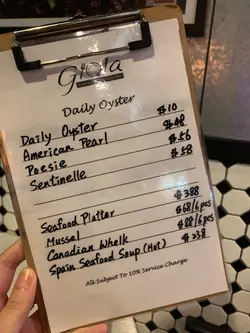 Gioia
Daily Oyster
Daily Oyster $10
American Pearl $48
Poesie $56
Sentinelle $58
Seafood Platter $388
Mussel $68/6pcs
Canadian Whelk $88/6pcs
Spain Seafood Soup (Hot) $238
All Subject To 10% Service Charge